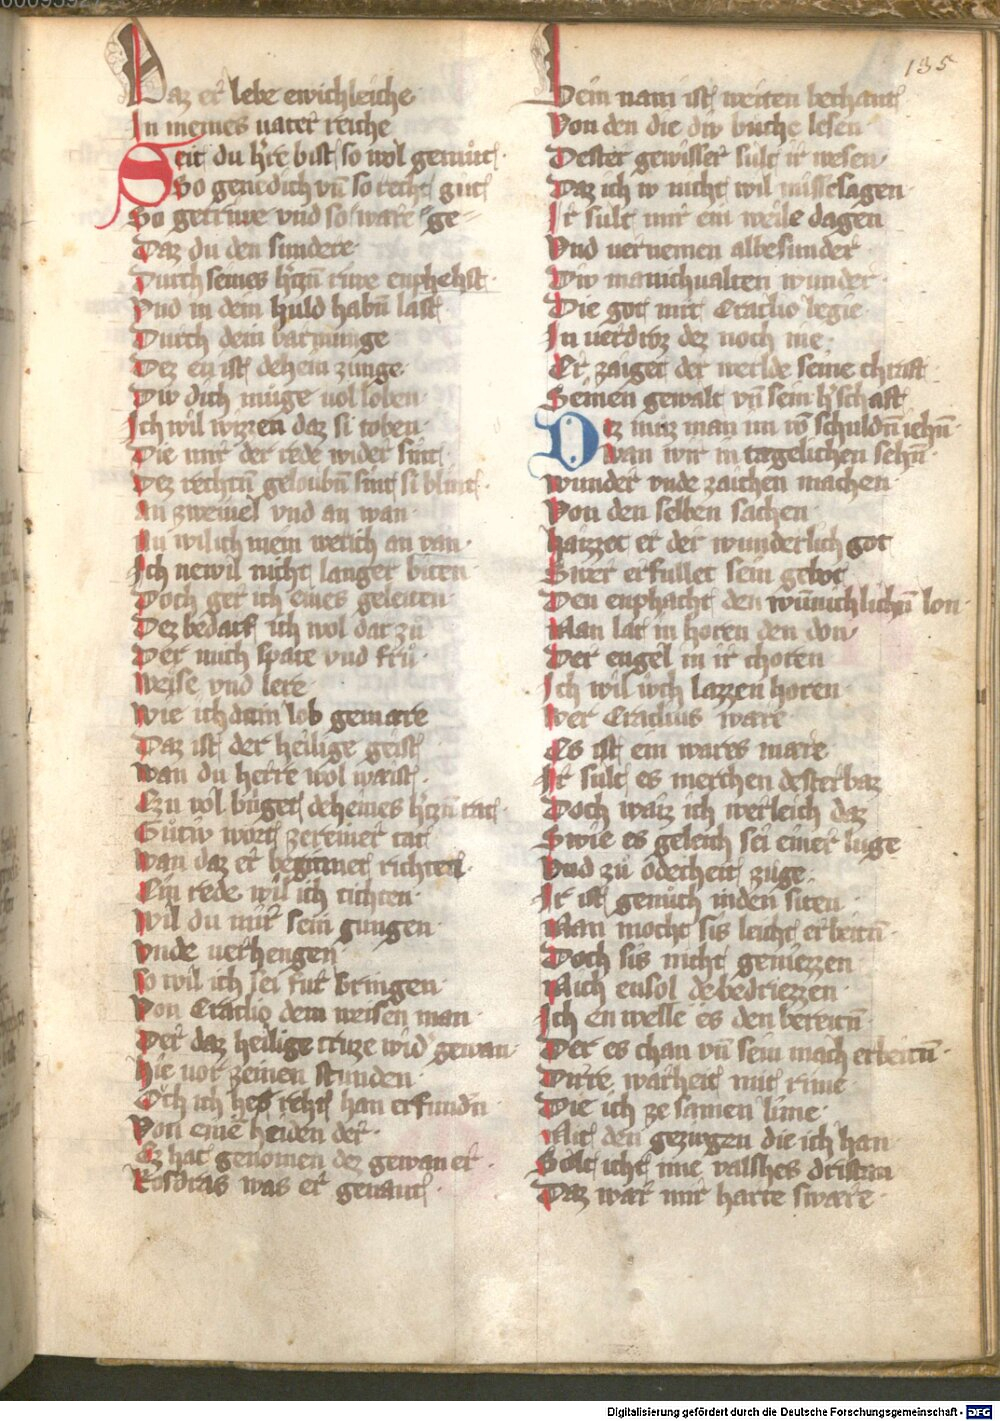 135
Daz er lebe ewichleiche
In meines vater reiche
Seit du h're bist so wol gemůt
So genedich vn̄ so recht gůt
So getriwe vnd so ware ge-
Daz du den sundere
Durch seines h'tzn̄ riwe enphehst
Vnd in dein huld habn̄ last
Durch dein barmunge
Dez en ist dehein zunge
Div dich muge vol loben
Ich wil wizzen daz si toben
Die mir der rede wider sint
Dez rechtn̄ geloubn̄ sint si blint
An zweiuel vnd an wan
Nu wil ich mein werich an van
Ich newil nicht langer biten
Doch ger ich eines geleiten
Dez bedarf ich wol dar zů
Der mich spate vnd frů
Weise vnd lere
Wie ich dein lob gemere
Daz ist der heilige geist
Wan du herre wol waist
Ezn vol bringet deheines h'tzn̄ rat
Gůtiv wort zereiner tat
Wan daz er beginnet richten
Ein rede wil ich tichten
Wil du mir sein gungen
Vnde verhengen
So wil ich sei fur bringen
Von Eraclio dem weisen man
Der daz heilige crivze wid' gewan
Hie vor zeinen stunden
Och ich hes recht han erfundn̄
Von eine heiden der
Ez hat genomen dez gewan er
Kosdras was er genant
Dein nam ist weiten bechant
Von den die div buche lesen
Dester gewisser sult ir wesen
Daz ich iv nicht wil missesagen
Ir sult mir ein weile dagen
Vnd vernemen albesunder
Div manichualten wunder
Die got mit Eraclio begie
In verdroz dez noch nie
Er zaiget der werlde seine chraft
Seinen gewalt vn̄ sein h'schaft
Dez muz man im vō schuldn̄ iehn̄
Wan wir in tagelichen sehn̄
Wunder vnde zaichen machen
Von den selben sachen
Haizzet er der wunderlich got
Swer erfullet sein gebot
Den enphacht den wūnichlichn̄ lon
Man lat in horen den don
Der engel in ir choren
Ich wil ivch lazzen horen
Wer Eraclius ware
Es ist ein wares mare
Ir sult es merchen dester baz
Doch waiz ich werleich daz
Swie es geleich sei einer luge
Vnd zů oderheit zuge
Ir ist genůch inden siten
Man mocht sis leicht erbeitn̄
Doch sis nicht geniezzen
Mich ensol debedriezzen
Ich en welle es den bereitn̄
Der es chan vn̄ sein mach erbeitn̄
Dirre warheit mit rime
Die ich ze samen lime
Mit den gezivgen die ich han
Solt icht ime valshes dristan
Daz war mir harte sware
Digitalisierung gefördert durch die Deutsche Forschungsgemeinschaft - DFG